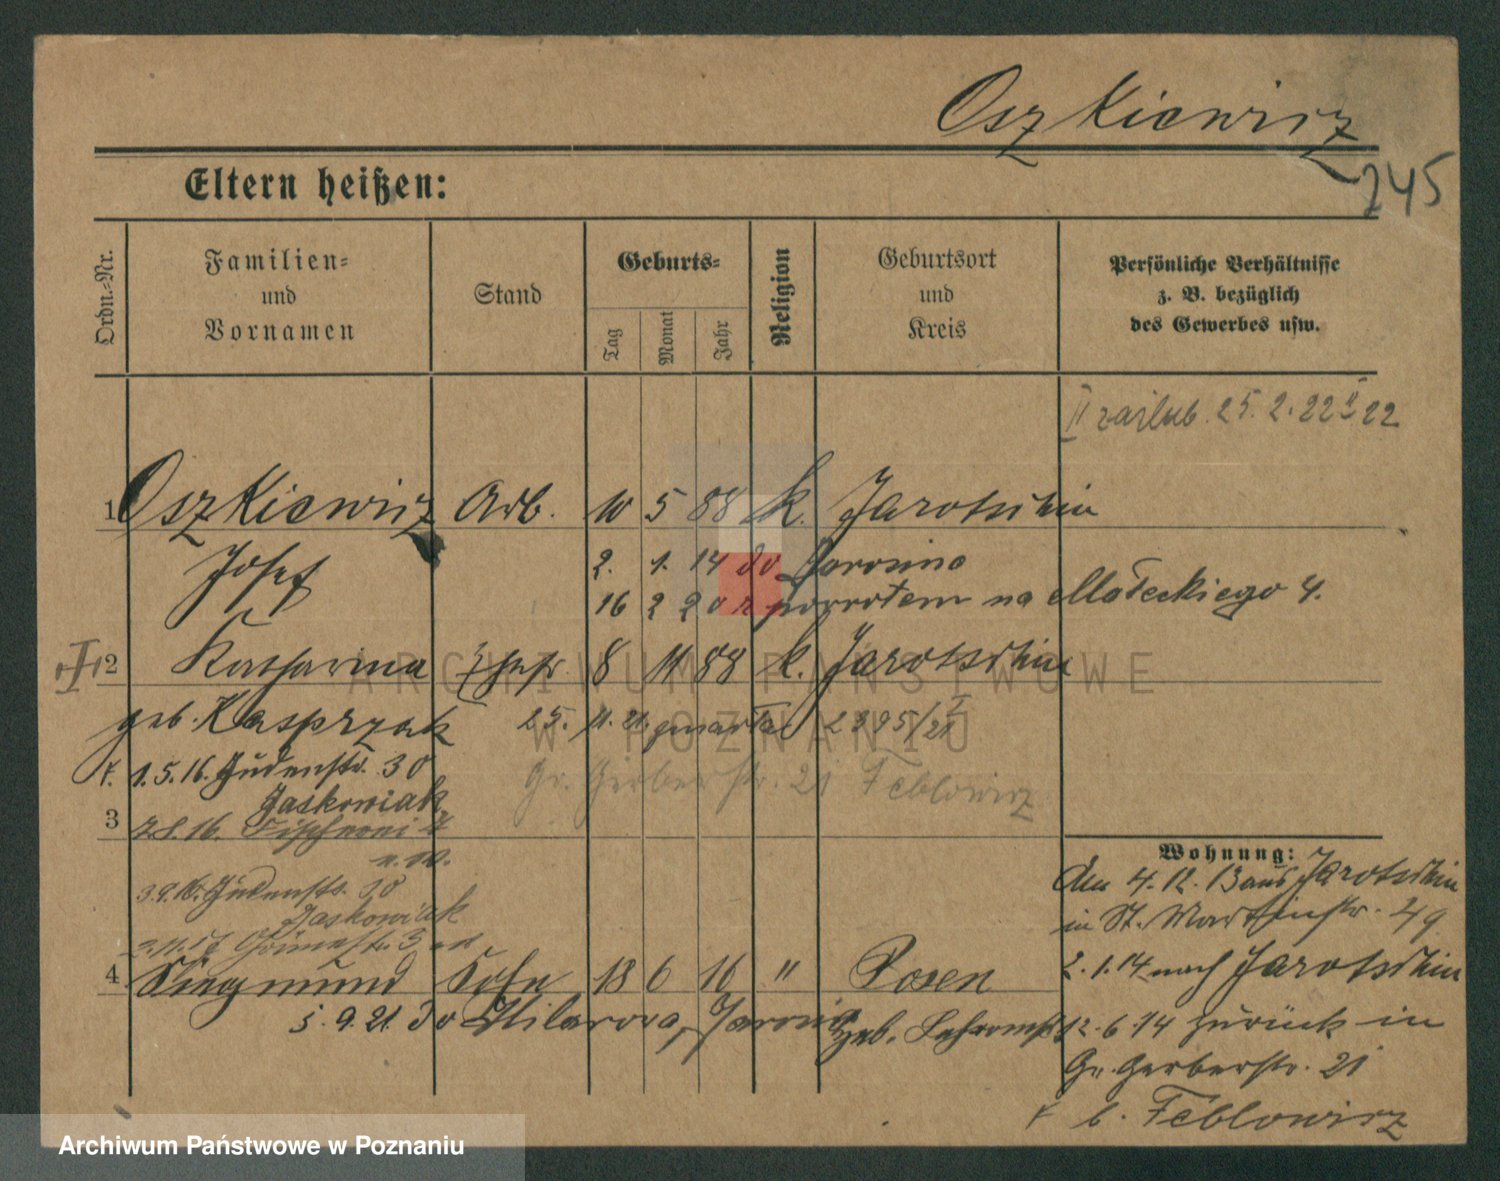 Oszkiewicz
245
Eltern heißen:
Ordn.-Nr.
Familien- und Vornamen
Stand
Geburts-
Tag
Monat
Jahr
Religion
Geburtsort und Kreis
Persönliche Verhältnisse z. B. bezüglich des Gewerbes usw.
II zaślub. 25. 2. 22
1 Oszkiewicz Arb. 10 5 88 k. Jarotschin
Josef
2. 1. 14 do Jarocina
16 2 20 z powrotem na Małeckiego 4.
2 Katharina Ehefr. 8 11 88 k. Jarotschin
geb. Kasprzak 25. 11. 21. 2395/21
1.5.16. Judenstr. 30
Jaskowiak
Gr. Gerberstr. 21 Feblowicz
3
7.8.16.
3.9.16. Judenstr. 30
Jaskowiak
4 Siegmund Sohn 18 6 16 " Posen
5. 9. 21. do Hilarowa, Jarocin
Wohnung:
den 4. 12. 13 aus Jarotschin
in St. Martinstr. 29
2. 1. 14 nach Jarotschin
12. 6. 14 zurück in
Gr. Gerberstr. 21
b. Feblowicz
ARCHIWUM PAŃSTWOWE
W POZNANIU
Archiwum Państwowe w Poznaniu